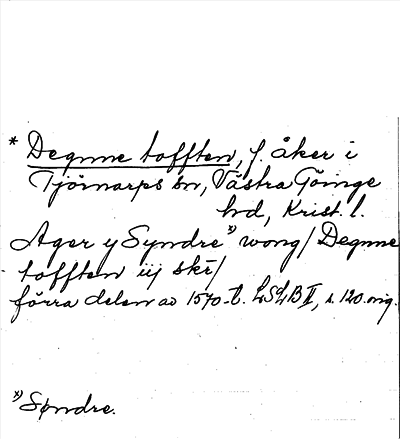 * Degnne tofften, f. åker i
Tjörnarps sn, Västra Göinge
hd, Krist. l.
Ager y Syndre x) wong / Degnne
tofften iij skr̄ /
förra delen av 1570-t. LSLB II, s. 120. orig.
x) Syndre.